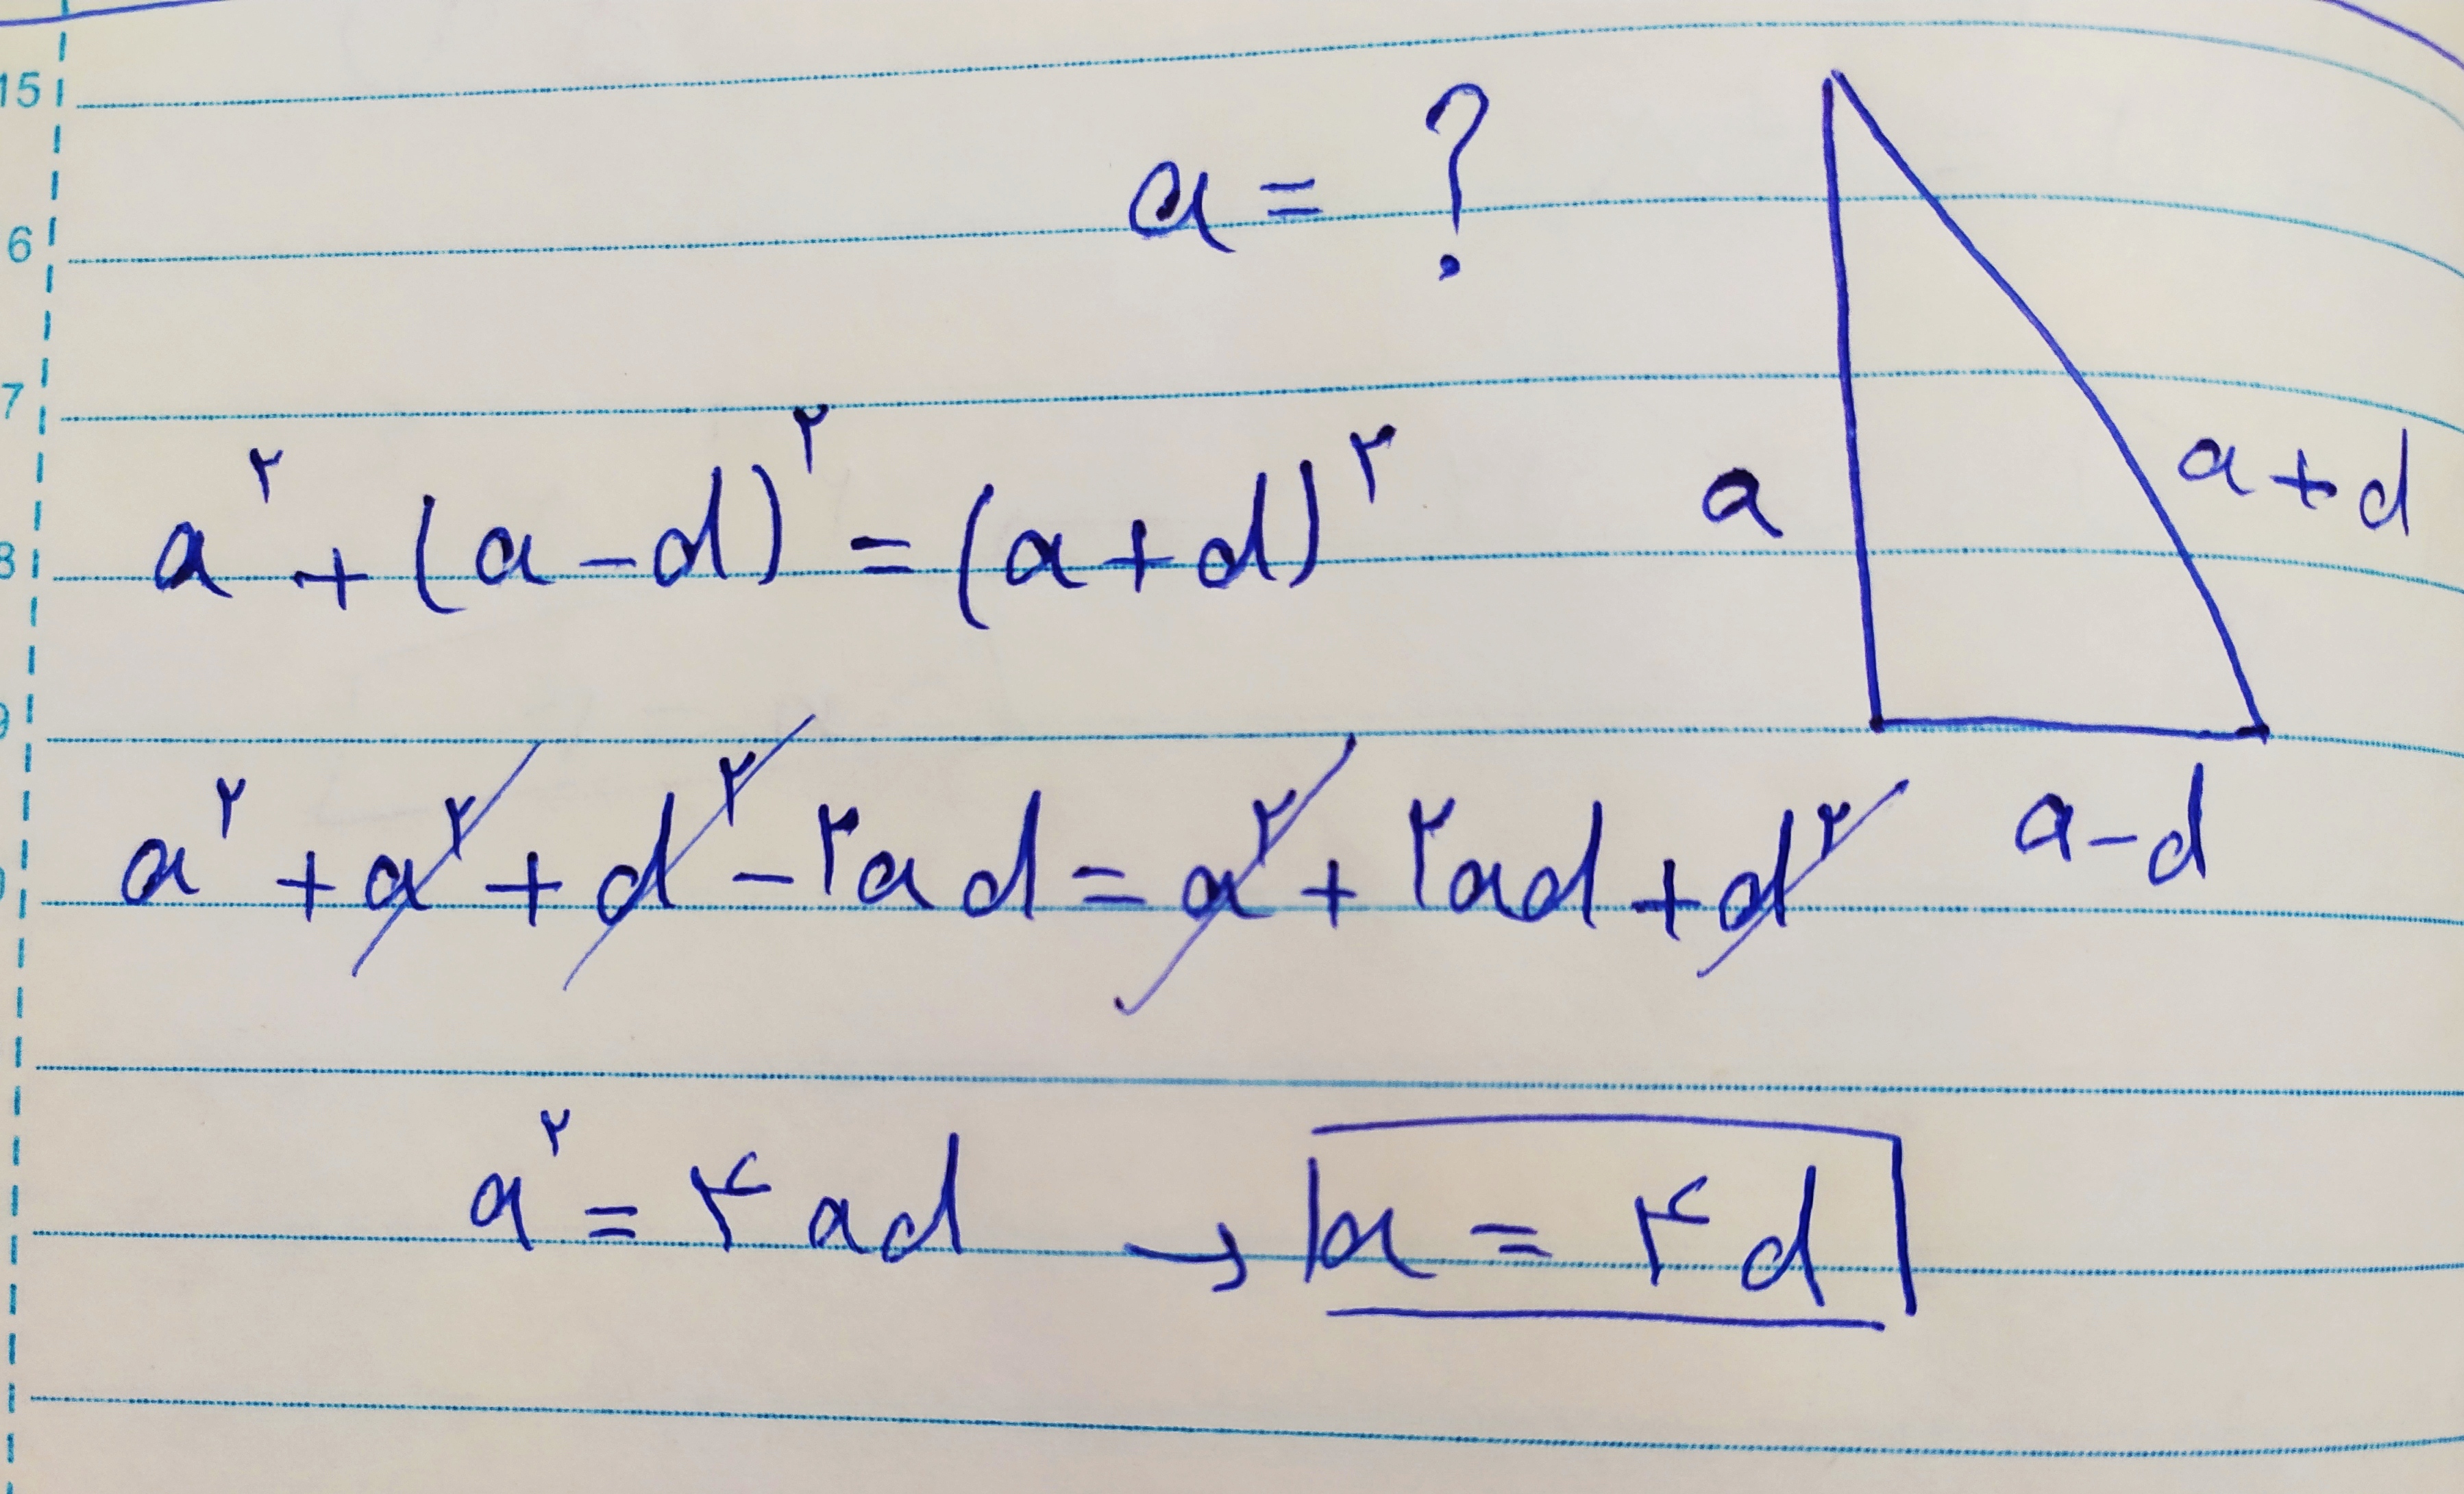 15
a = ?
6
7
a
a+d
a^۲ + (a-d)^۲ = (a+d)^۲
8
9
a-d
a^۲ + a^۲ + d^۲ - ۲ad = a^۲ + ۲ad + d^۲
a^۲ = ۴ad → a = ۴d